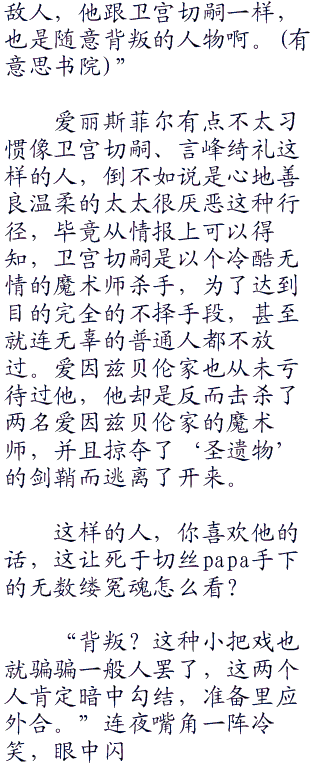 敌人，他跟卫宫切嗣一样，
也是随意背叛的人物啊。(有
意思书院)”
爱丽斯菲尔有点不太习
惯像卫宫切嗣、言峰绮礼这
样的人，倒不如说是心地善
良温柔的太太很厌恶这种行
径，毕竟从情报上可以得
知，卫宫切嗣是以个冷酷无
情的魔术师杀手，为了达到
目的完全的不择手段，甚至
就连无辜的普通人都不放
过。爱因兹贝伦家也从未亏
待过他，他却是反而击杀了
两名爱因兹贝伦家的魔术
师，并且掠夺了‘圣遗物’
的剑鞘而逃离了开来。
这样的人，你喜欢他的
话，这让死于切丝papa手下
的无数缕冤魂怎么看？
“背叛？这种小把戏也
就骗骗一般人罢了，这两个
人肯定暗中勾结，准备里应
外合。”连夜嘴角一阵冷
笑，眼中闪